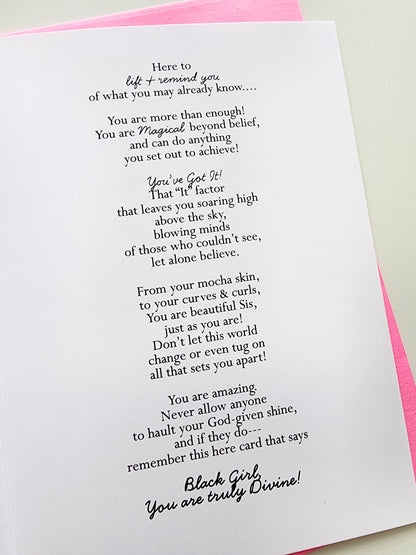 Here to
lift + remind you
of what you may already know....
You are more than enough!
You are Magical beyond belief,
and can do anything
you set out to achieve!
You've Got It!
That "It" factor
that leaves you soaring high
above the sky,
blowing minds
of those who couldn't see,
let alone believe.
From your mocha skin,
to your curves & curls,
You are beautiful Sis,
just as you are!
Don't let this world
change or even tug on
all that sets you apart!
You are amazing.
Never allow anyone
to hault your God-given shine,
and if they do---
remember this here card that says
Black Girl,
You are truly Divine!